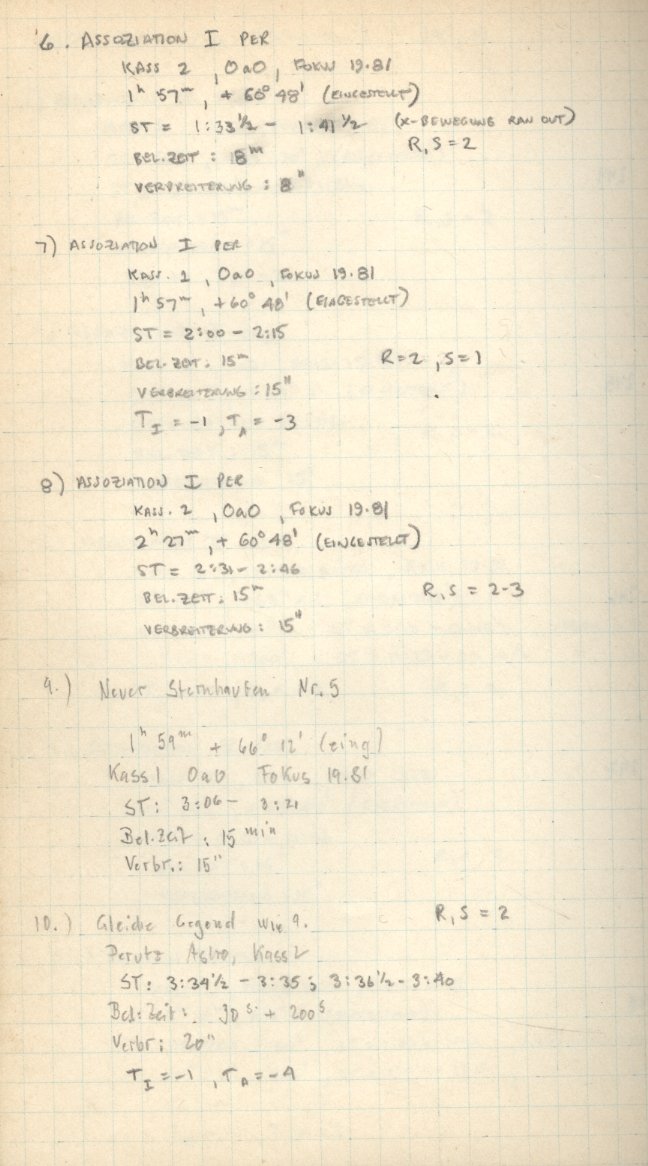 6. ASSOZIATION I PER
KASS 2, OaO, FOKUS 19.81
1h 57m, + 60° 48' (EINGESTELLT)
ST = 1:33 1/2 - 1:41 1/2 (X-BEWEGUNG RAN OUT)
BEL.ZEIT : 8m R, S = 2
VERBREITERUNG : 8"
7) ASSOZIATION I PER
KASS. 1, OaO, FOKUS 19.81
1h 57m, +60° 48' (EINGESTELLT)
ST = 2:00 - 2:15
BEL.ZEIT: 15m R=2, S=1
VERBREITERUNG : 15"
T_I = -1, T_A = -3
8) ASSOZIATION I PER
KASS. 2, OaO, FOKUS 19.81
2h 27m, + 60° 48' (EINGESTELLT)
ST = 2:31 - 2:46
BEL.ZEIT: 15m R, S = 2-3
VERBREITERUNG: 15"
9.) Neuer Sternhaufen Nr. 5
1h 59m + 66° 12' (eing)
Kass 1 OaO Fokus 19.81
ST: 3:06 - 3:21
Bel.Zeit : 15 min
Verbr.: 15"
10.) Gleiche Gegend wie 9. R, S = 2
Perutz Astro, Kass 2
ST: 3:34 1/2 - 3:35 ; 3:36 1/2 - 3:40
Bel.Zeit: 30s. + 200s
Verbr: 20"
T_I = -1, T_A = -4